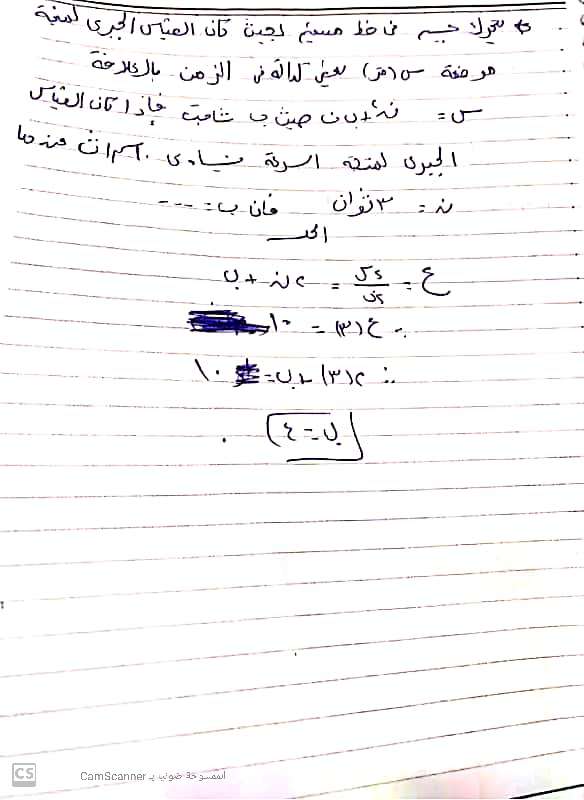 يتحرك جسم فى خط مستقيم بحيث كان القياس الجبرى لمتجه
موضعه س (متر) يعطى كدالة فى الزمن بالعلاقة
س = ن٢ + ب ن حيث ب ثابت فإذا كان القياس
الجبرى لمتجه السرعة يساوى ١٠ م/ث عندما
ن = ٣ ثوان فان ب = ---
الحل
ع = ءس/ءن = ٢ن + ب
∵ ع(٣) = ١٠
∴ ٢(٣) + ب = ١٠
ب = ٤
CS
الممسوحة ضوئيا بـ CamScanner